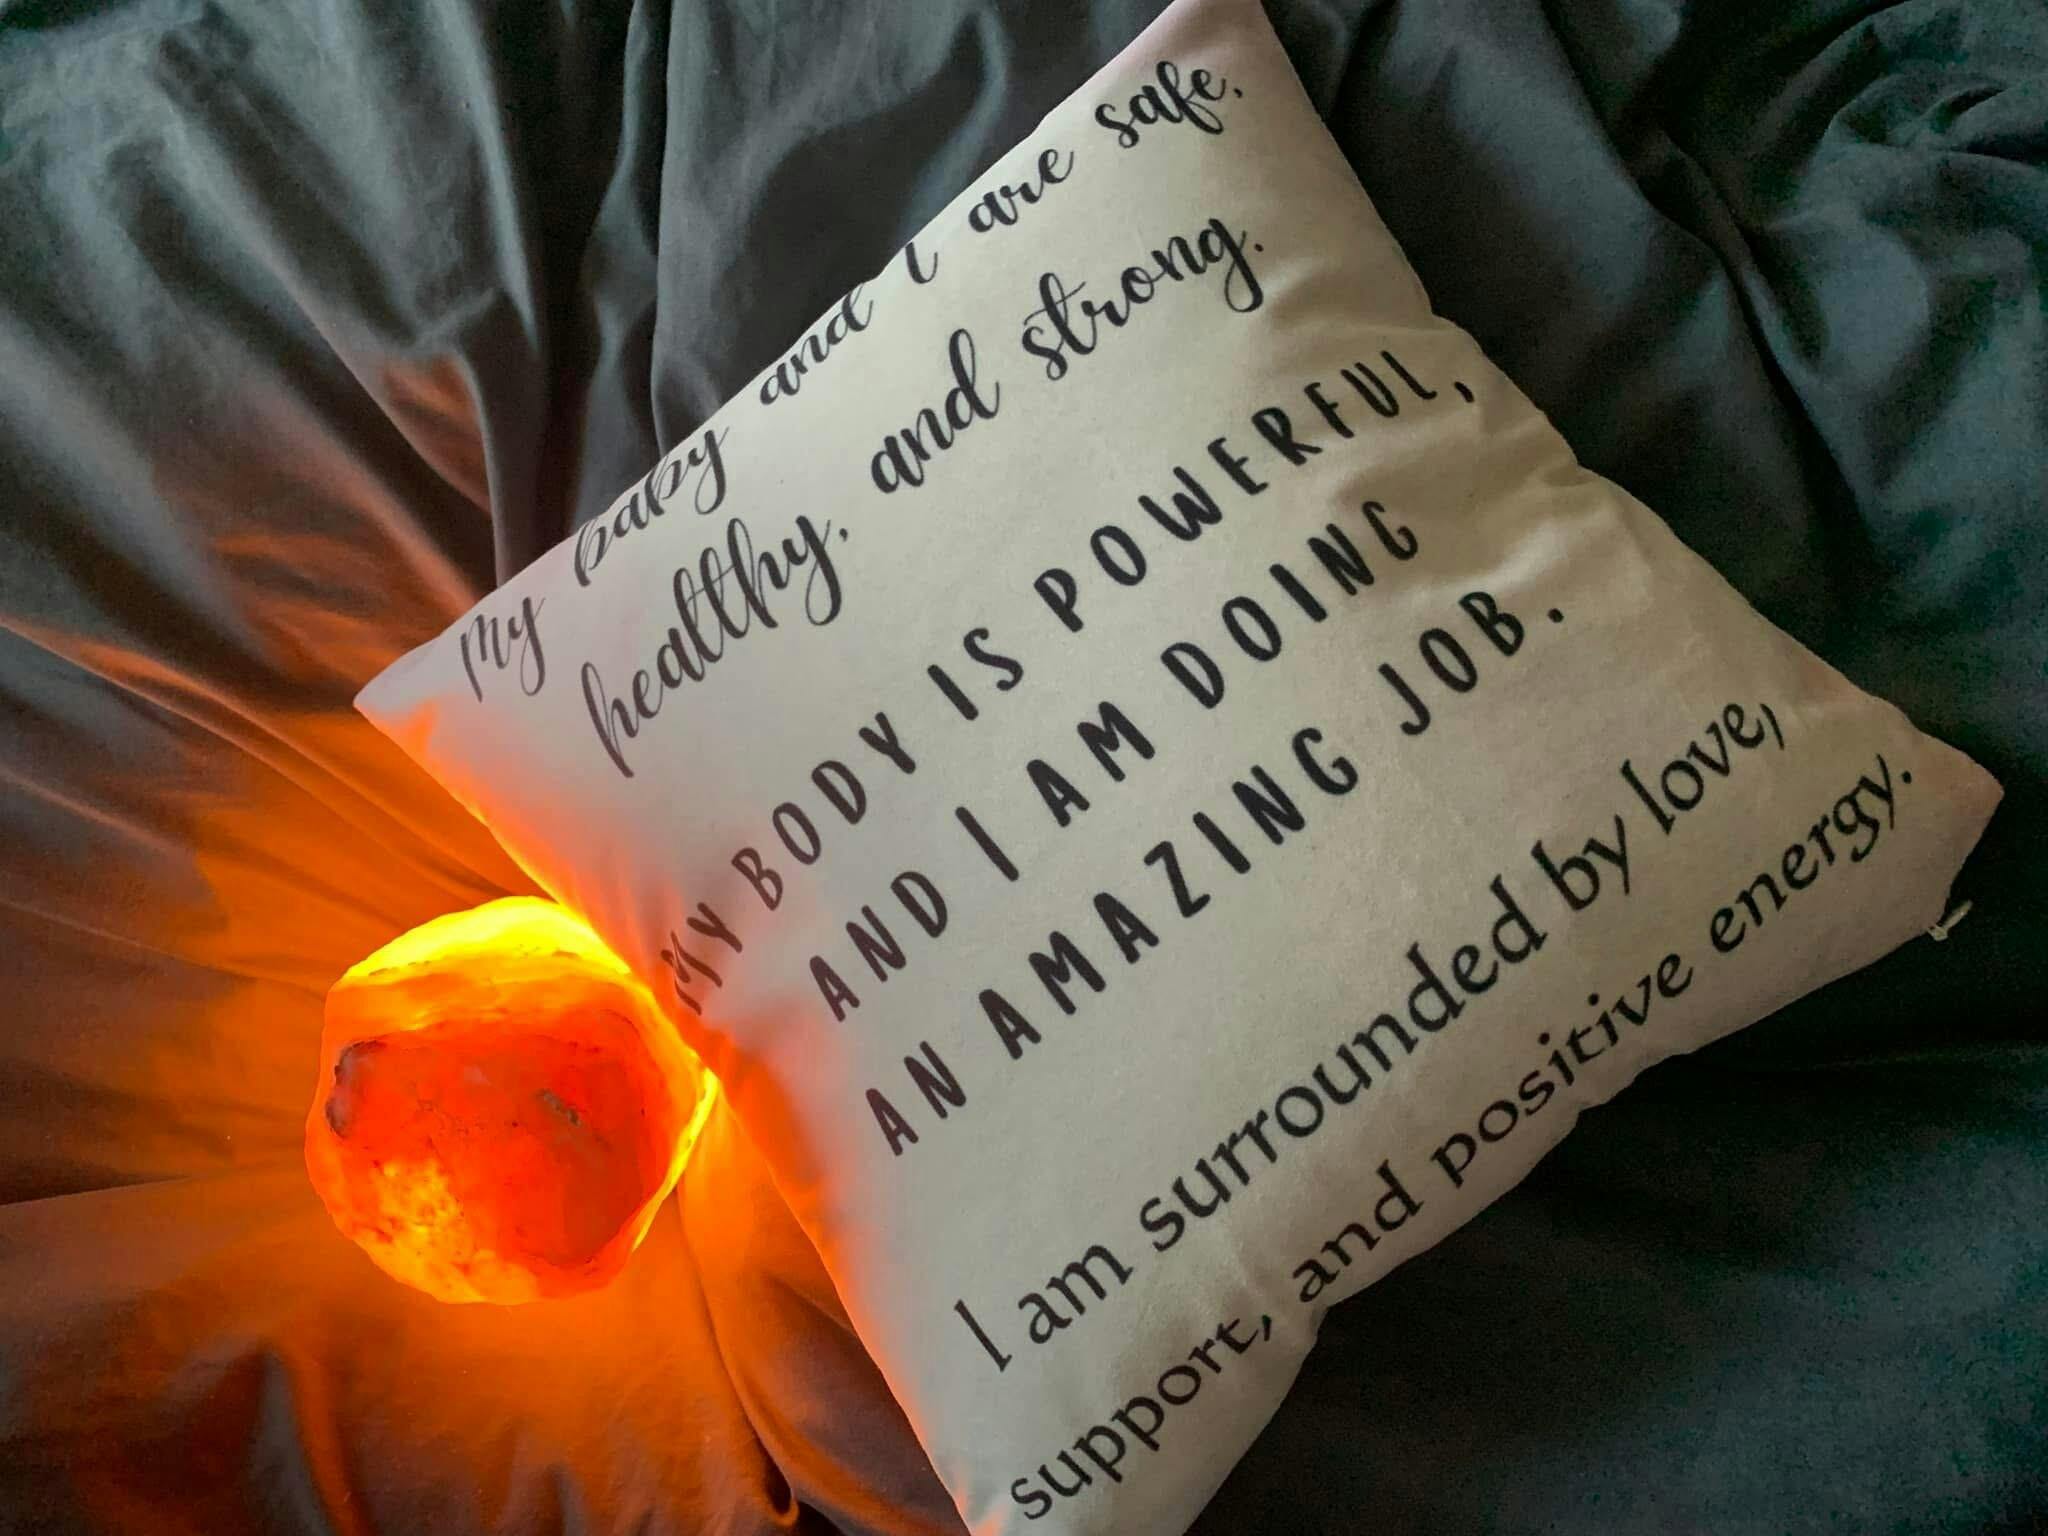 My baby and I are safe,
healthy, and strong.
MY BODY IS POWERFUL,
AND I AM DOING
AN AMAZING JOB.
I am surrounded by love,
support, and positive energy.